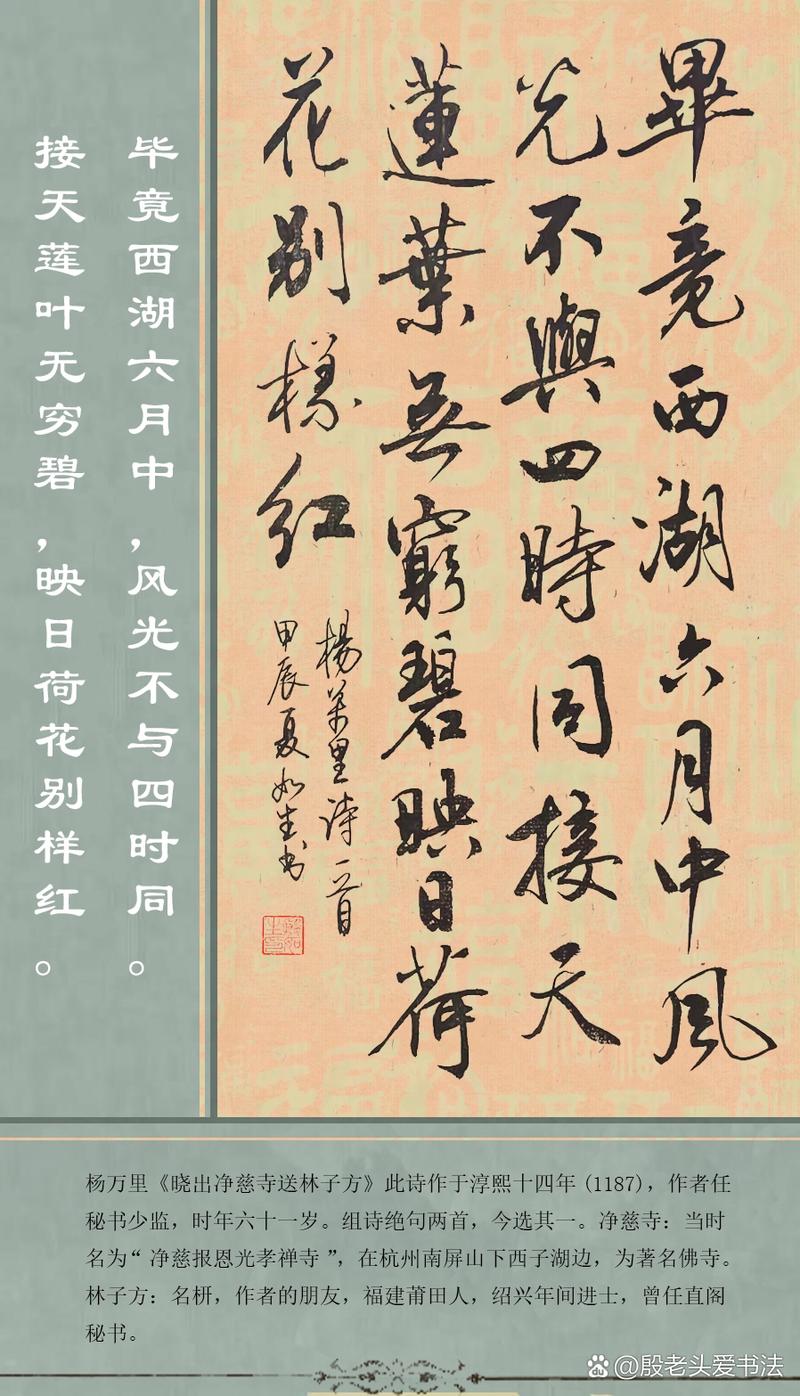 畢竟西湖六月中風
光不與四時同接天
蓮葉無窮碧映日荷
花别樣红
楊萬里诗一首
甲辰夏如生书
毕竟西湖六月中，风光不与四时同。
接天莲叶无穷碧，映日荷花别样红。
杨万里《晓出净慈寺送林子方》此诗作于淳熙十四年(1187)，作者任
秘书少监，时年六十一岁。组诗绝句两首，今选其一。净慈寺：当时
名为“净慈报恩光孝禅寺”，在杭州南屏山下西子湖边，为著名佛寺。
林子方：名枅，作者的朋友，福建莆田人，绍兴年间进士，曾任直阁
秘书。
@殷老头爱书法